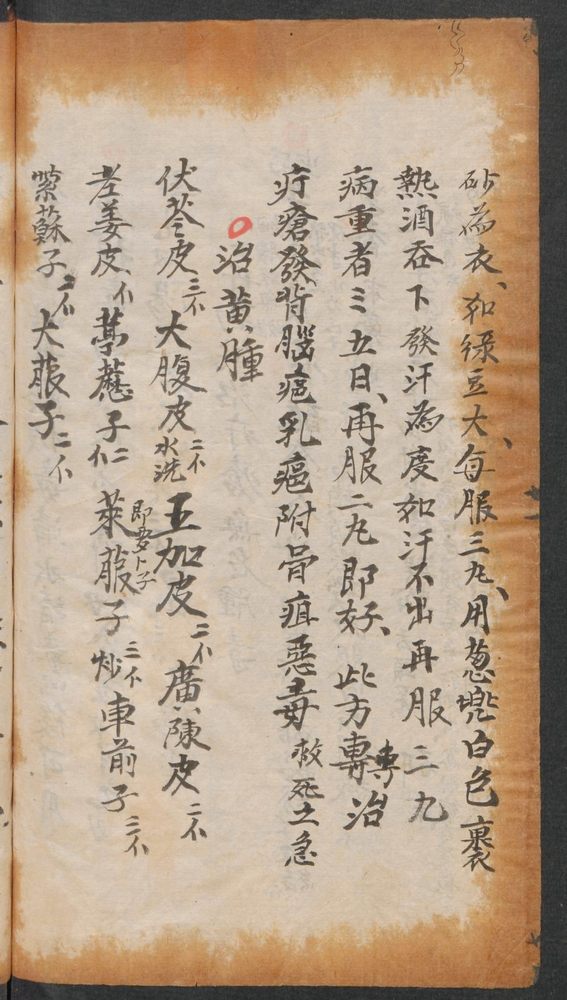 砂為衣、如綠豆大、每服三九、用葱兠白色裹
熱酒吞下發汗為度如汗不出再服三九
病重者三五日、再服二九即好、此方專治
專
疔瘡發背腦疽乳疽附骨疽惡毒救死之急
治黃腫
伏苓皮三个大腹皮二个水洗五加皮二个廣陳皮二个
老姜皮、个葶藶子仁萊菔子即萝卜子炒三个車前子三个
紫蘇子个大菔子二个